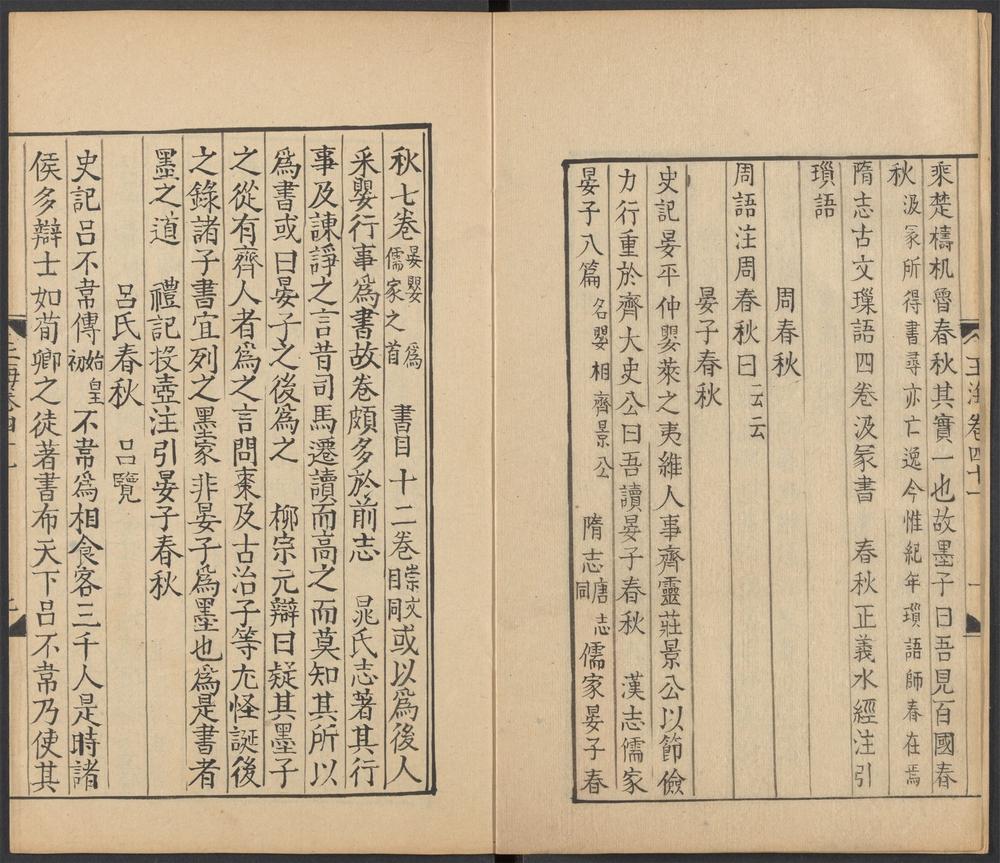 玉海卷四十一
乘楚檮杌魯春秋其實一也故墨子曰吾見百國春
秋汲冢所得書尋亦亡逸今惟紀年瑣語師春在焉
隋志古文璅語四卷汲冢書　春秋正義水經注引
瑣語
周春秋
周語注周春秋曰云云
晏子春秋
史記晏平仲嬰萊之夷維人事齊靈莊景公以節儉
力行重於齊太史公曰吾讀晏子春秋　漢志儒家
晏子八篇名嬰相齊景公　隋志唐志同儒家晏子春
秋七卷晏嬰爲儒家之首　書目十二卷崇文目同或以爲後人
采嬰行事爲書故卷頗多於前志　晁氏志著其行
事及諫諍之言昔司馬遷讀而高之而莫知其所以
爲書或曰晏子之後爲之　柳宗元辯曰疑其墨子
之從有齊人者爲之言問棗及古冶子等尤怪誕後
之錄諸子書宜列之墨家非晏子爲墨也爲是書者
墨之道　禮記投壺注引晏子春秋
呂氏春秋　呂覽
史記呂不韋傳始皇初不韋爲相食客三千人是時諸
侯多辯士如荀卿之徒著書布天下呂不韋乃使其